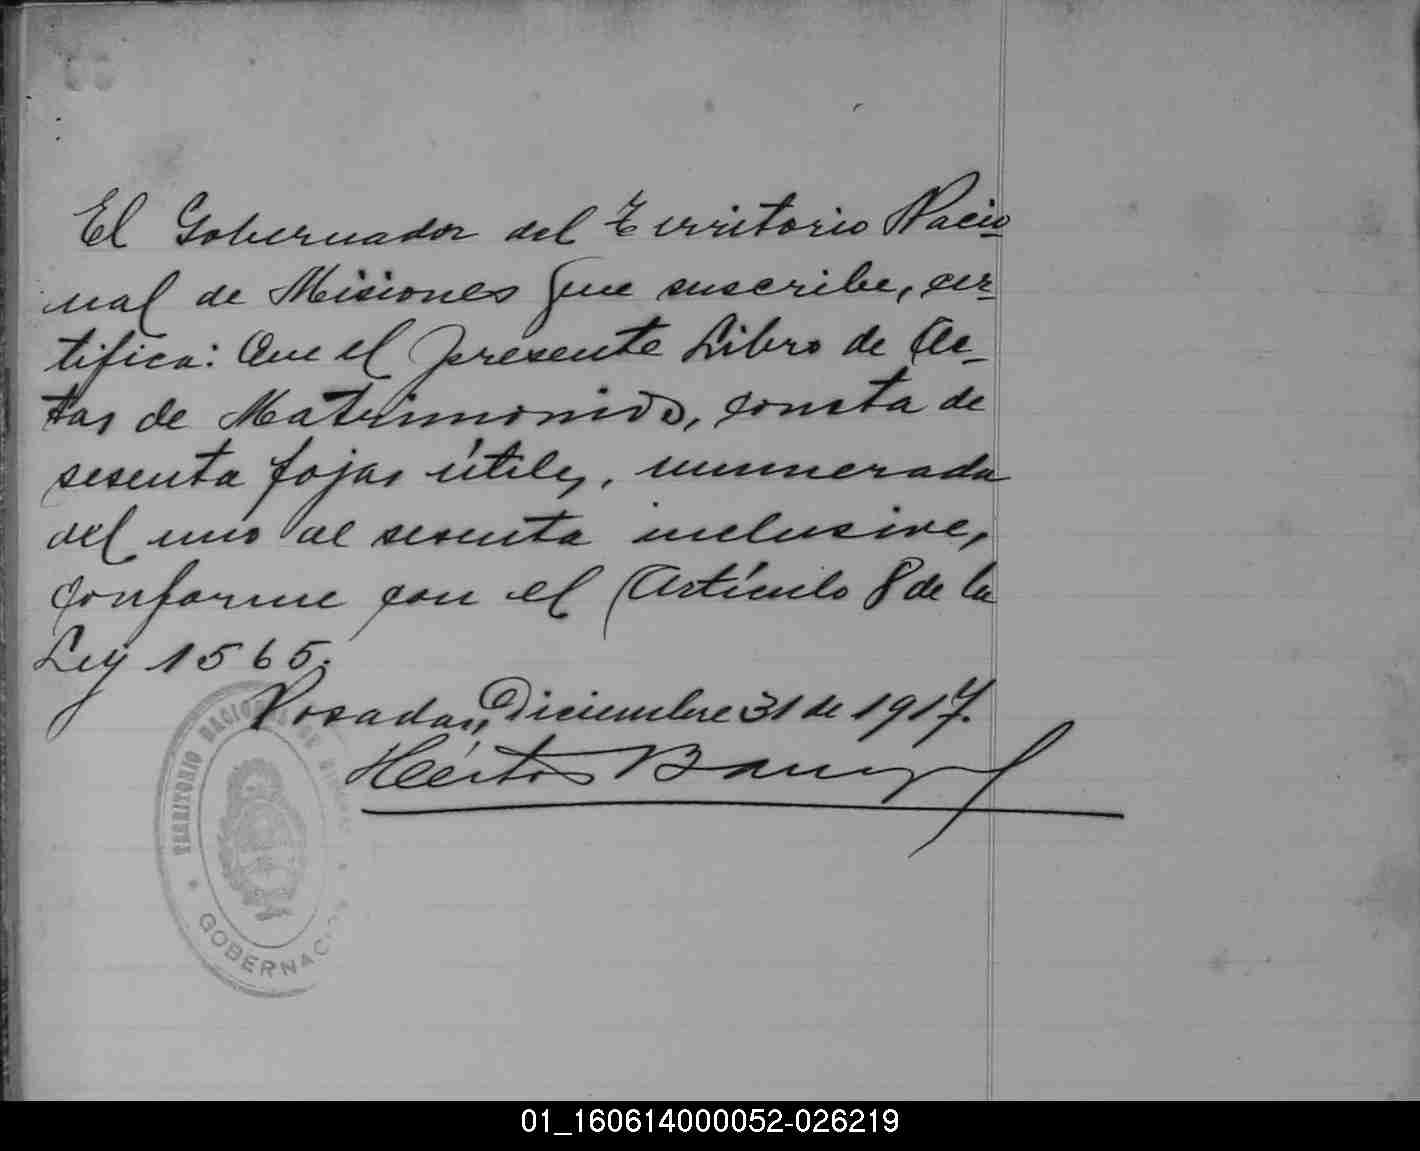 El Gobernador del Territorio Nacio-
nal de Misiones que suscribe, cer-
tifica: Que el presente Libro de Ac-
tas de Matrimonios, consta de
sesenta fojas útiles, numerada
del uno al sesenta inclusive,
conforme con el Artículo 8 de la
Ley 1565.
Posadas, Diciembre 31 de 1917.
Héctor
TERRITORIO NACIONAL DE MISIONES
GOBERNACION
01_160614000052-026219